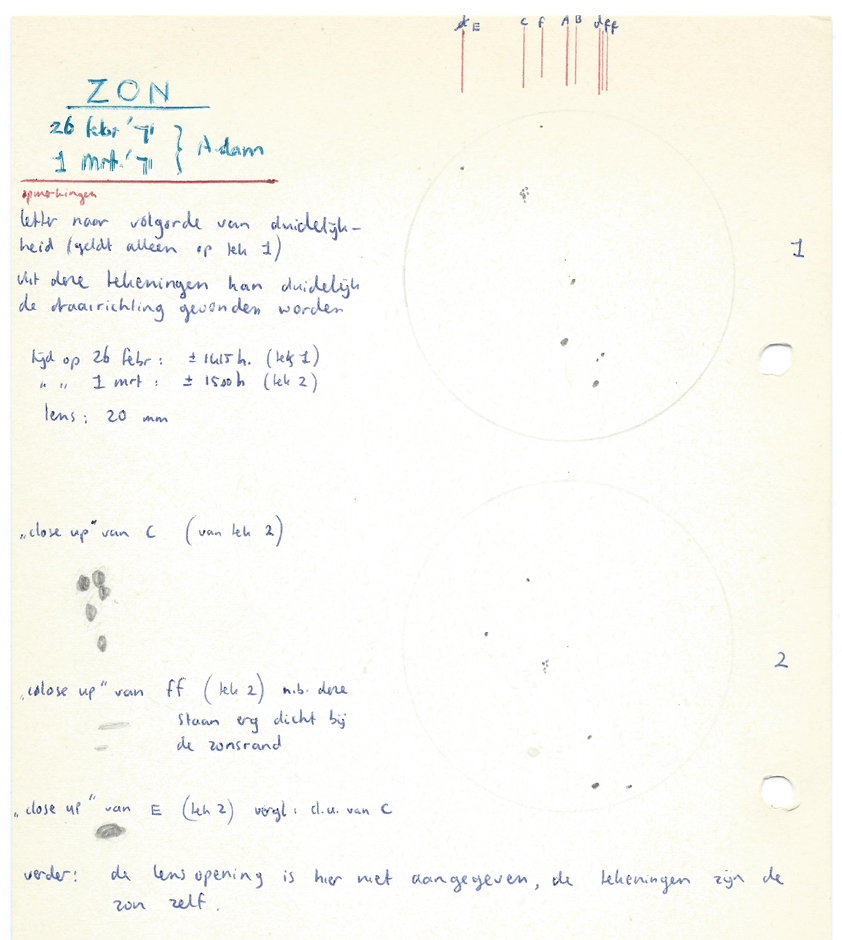 E C f A B d ff
ZON
26 febr '77
1 mrt. '77 } A-dam
opmerkingen
letter naar volgorde van duidelijk-
heid (geldt alleen op tek 1)
uit deze tekeningen kan duidelijk
de draairichting gevonden worden
1
tijd op 26 febr : ± 1415 h. (tek 1)
" " 1 mrt : ± 1500 h (tek 2)
lens : 20 mm
„close up" van C (van tek 2)
2
„close up" van ff (tek 2) n.b. deze
staan erg dicht bij
de zonsrand
„close up" van E (tek 2) vergl : cl.u. van C
verder : de lensopening is hier niet aangegeven, de tekeningen zijn de
zon zelf.